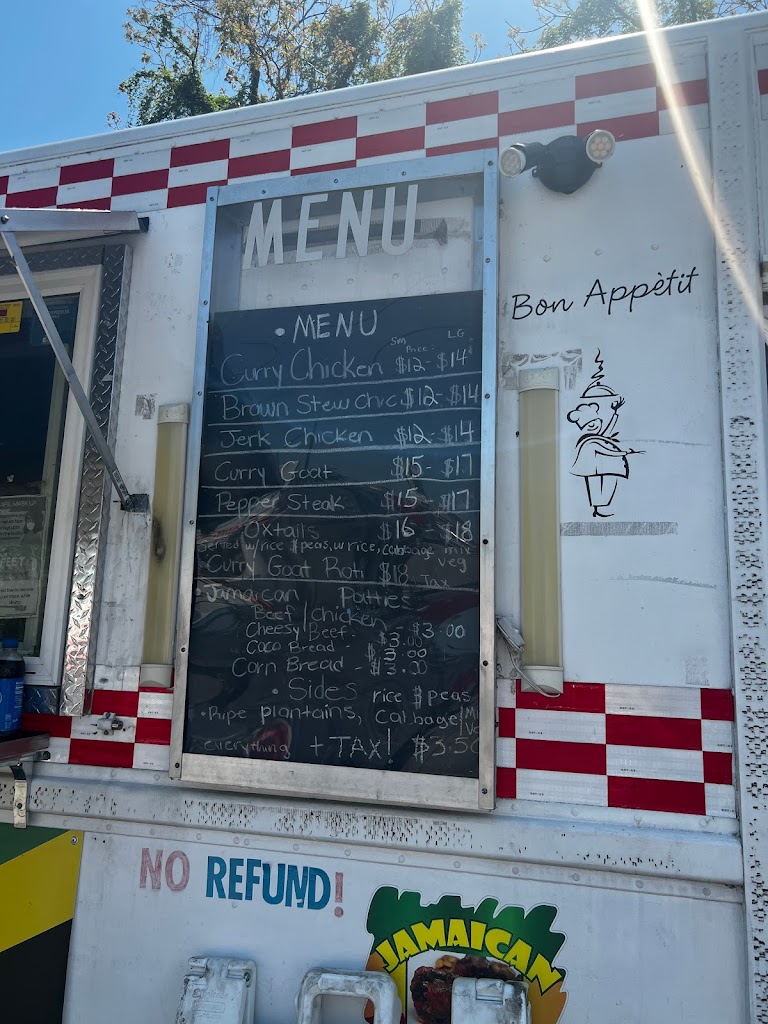 MENU
Bon Appètit
• MENU
SM LG
Price:
Curry Chicken $12-$14
Brown Stew Chic $12-$14
Jerk Chicken $12-$14
Curry Goat $15-$17
Pepper Steak $15-$17
Oxtails $16 $18
Served w/rice & peas, w rice, cabbage mix veg
Curry Goat Roti $18 Tax
• Jamaican Patties
Beef/Chicken
Cheesy Beef - $3.00
Coco Bread $3.00
$3.00
Corn Bread - $3.00
• Sides rice & peas
• Ripe plantains, Cabbage/
everything + TAX! $3.50
NO REFUND!
JAMAICAN